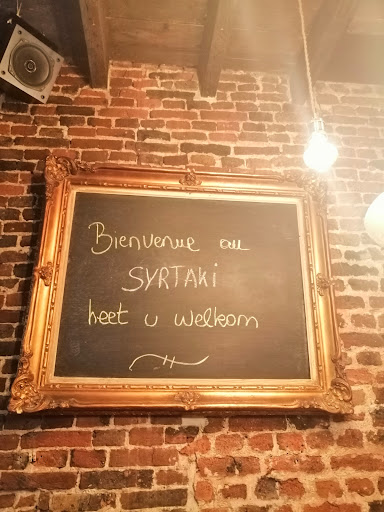 Bienvenue au
SYRTAKI
heet u welkom